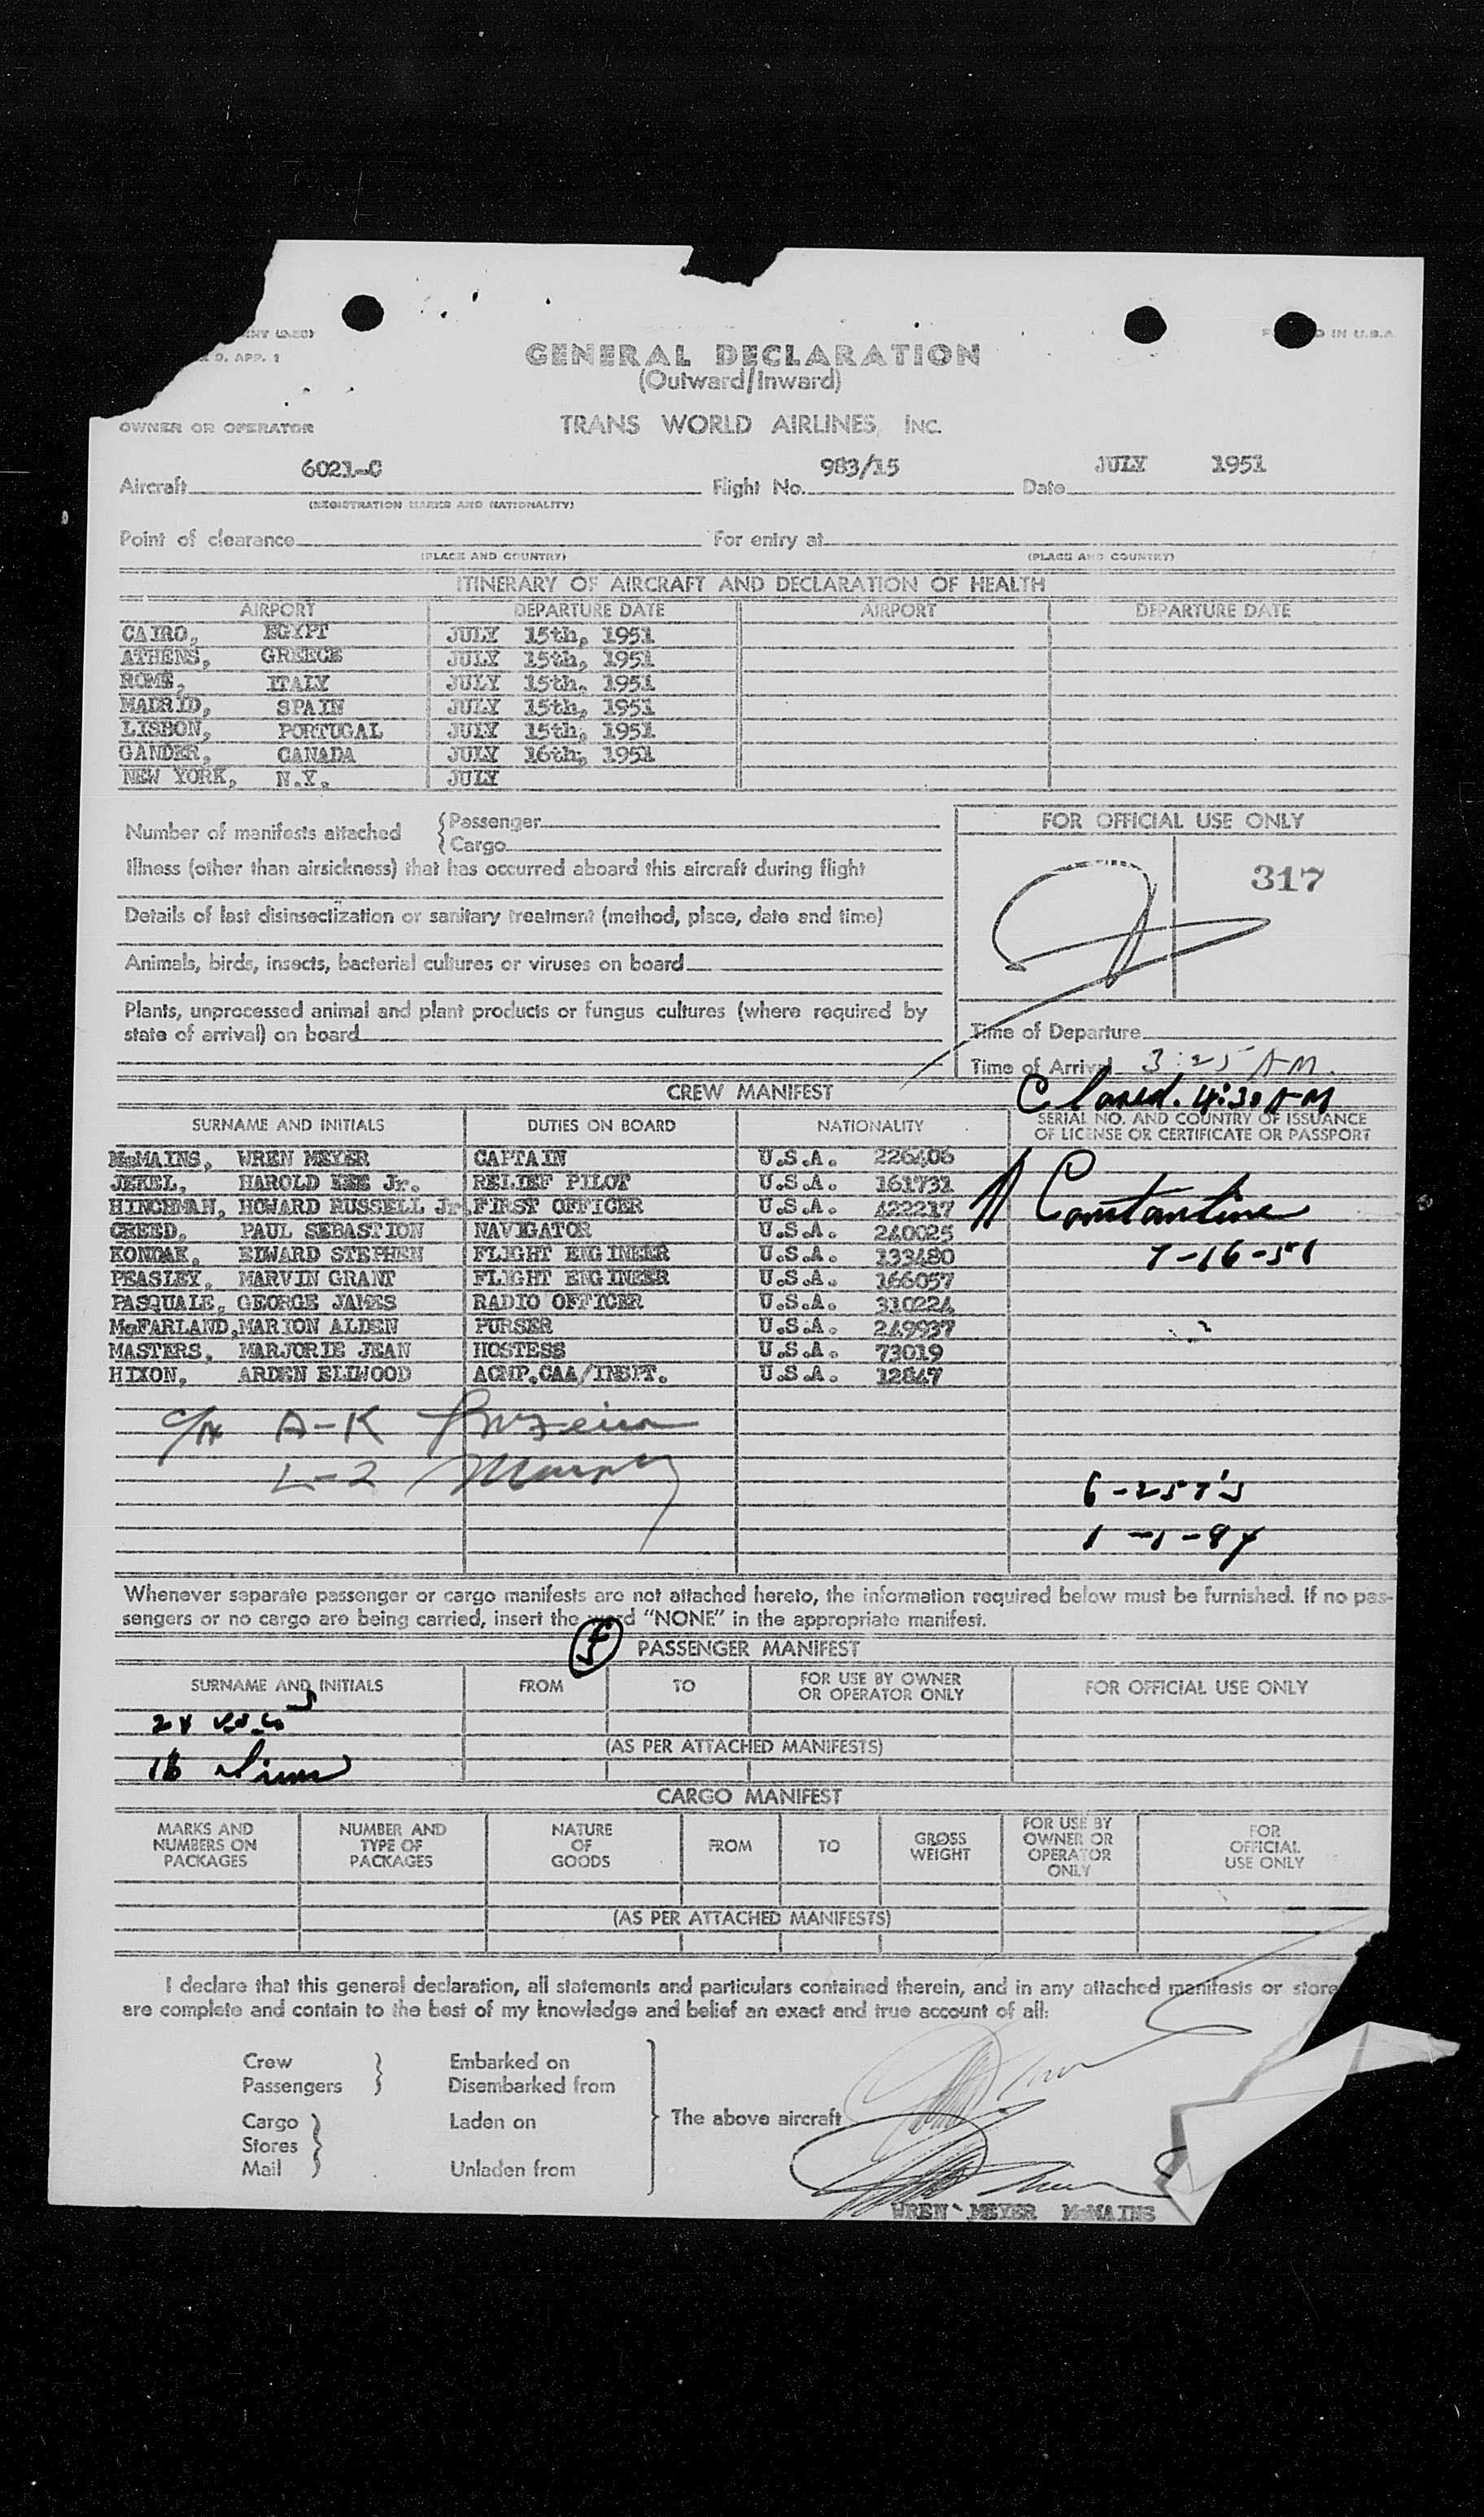 D IN U.S.A.
9, APP. 1
GENERAL DECLARATION
(Outward/Inward)
OWNER OR OPERATOR TRANS WORLD AIRLINES, INC.
Aircraft 6021-C Flight No. 983/15 Date JULY 1951
(REGISTRATION MARKS AND NATIONALITY)
Point of clearance For entry at
(PLACE AND COUNTRY) (PLACE AND COUNTRY)
ITINERARY OF AIRCRAFT AND DECLARATION OF HEALTH
AIRPORT DEPARTURE DATE AIRPORT DEPARTURE DATE
CAIRO, EGYPT JULY 15th, 1951
ATHENS, GREECE JULY 15th, 1951
ROME, ITALY JULY 15th, 1951
MADRID, SPAIN JULY 15th, 1951
LISBON, PORTUGAL JULY 15th, 1951
GANDER, CANADA JULY 16th, 1951
NEW YORK, N.Y. JULY
Number of manifests attached { Passenger
{ Cargo
Illness (other than airsickness) that has occurred aboard this aircraft during flight
Details of last disinsectization or sanitary treatment (method, place, date and time)
Animals, birds, insects, bacterial cultures or viruses on board
Plants, unprocessed animal and plant products or fungus cultures (where required by
state of arrival) on board
FOR OFFICIAL USE ONLY
317
Time of Departure
Time of Arrival 3:25 AM.
Closed. 4:30 AM
CREW MANIFEST
SURNAME AND INITIALS DUTIES ON BOARD NATIONALITY SERIAL NO. AND COUNTRY OF ISSUANCE
OF LICENSE OR CERTIFICATE OR PASSPORT
McMAINS, WREN MEYER CAPTAIN U.S.A. 226406
JEKEL, HAROLD LEE Jr. RELIEF PILOT U.S.A. 161731
HINCHMAN, HOWARD RUSSELL Jr FIRST OFFICER U.S.A. 422217
CREED, PAUL SEBASTION NAVIGATOR U.S.A. 240025
KONDAK, EDWARD STEPHEN FLIGHT ENGINEER U.S.A. 133480
PEASLEY, MARVIN GRANT FLIGHT ENGINEER U.S.A. 166057
PASQUALE, GEORGE JAMES RADIO OFFICER U.S.A. 310224
McFARLAND, MARION ALDEN PURSER U.S.A. 249937
MASTERS, MARJORIE JEAN HOSTESS U.S.A. 73019
HIXON, ARDEN ELLWOOD ACMP.CAA/INSPT. U.S.A. 12847
Constantine
7-16-51
A-K
L-Z
6-257's
Whenever separate passenger or cargo manifests are not attached hereto, the information required below must be furnished. If no pas-
sengers or no cargo are being carried, insert the word "NONE" in the appropriate manifest.
PASSENGER MANIFEST
SURNAME AND INITIALS FROM TO FOR USE BY OWNER
OR OPERATOR ONLY FOR OFFICIAL USE ONLY
(AS PER ATTACHED MANIFESTS)
16 aliens
CARGO MANIFEST
MARKS AND
NUMBERS ON
PACKAGES NUMBER AND
TYPE OF
PACKAGES NATURE
OF
GOODS FROM TO GROSS
WEIGHT FOR USE BY
OWNER OR
OPERATOR
ONLY FOR
OFFICIAL
USE ONLY
(AS PER ATTACHED MANIFESTS)
I declare that this general declaration, all statements and particulars contained therein, and in any attached manifests or store
are complete and contain to the best of my knowledge and belief an exact and true account of all:
Crew } Embarked on
Passengers } Disembarked from
Cargo } Laden on The above aircraft
Stores }
Mail } Unladen from
WREN MEYER McMAINS